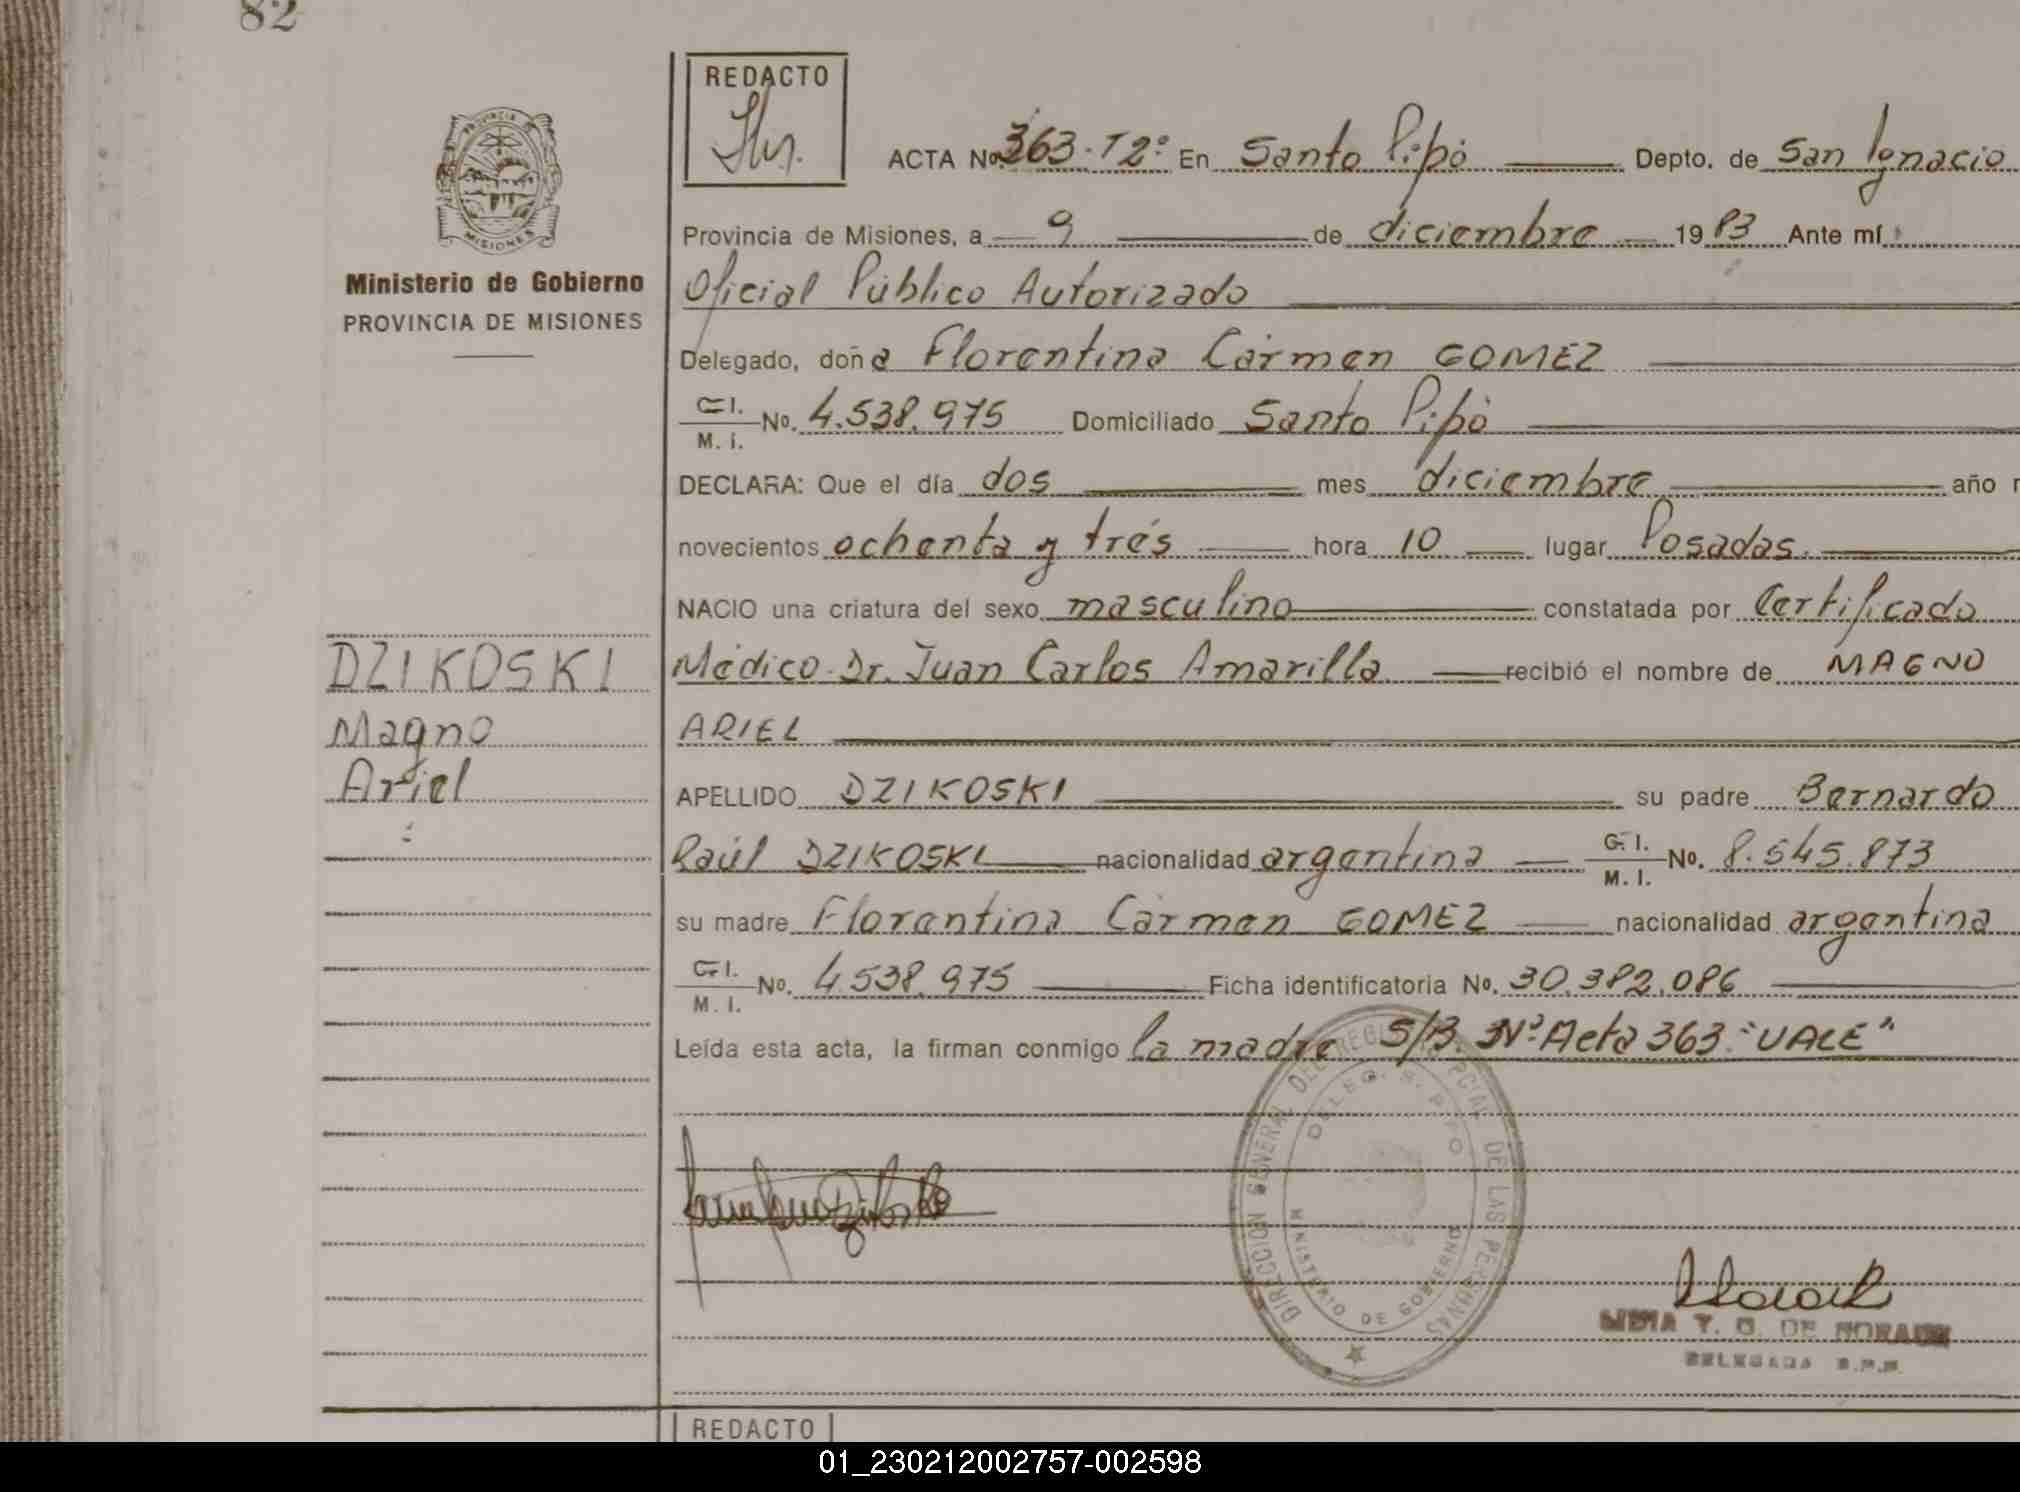 82
REDACTO
ACTA No. 363-T2º En Santo Pipó Depto. de San Ignacio
Provincia de Misiones, a 9 de diciembre 1983 Ante mí
Ministerio de Gobierno
PROVINCIA DE MISIONES
Oficial Público Autorizado
Delegado, doña Florentina Cármen GOMEZ
C.I.
M. I. No. 4.538.975 Domiciliado Santo Pipó
DECLARA: Que el día dos mes diciembre año
novecientos ochenta y trés hora 10 lugar Posadas.
NACIO una criatura del sexo masculino constatada por Certificado
DZIKOSKI
Médico Dr. Juan Carlos Amarilla recibió el nombre de MAGNO
Magno
ARIEL
Ariel
APELLIDO DZIKOSKI su padre Bernardo
Raúl DZIKOSKI nacionalidad argentina C. I.
M. I. No. 8.545.873
su madre Florentina Cármen GOMEZ nacionalidad argentina
C. I.
M. I. No. 4.538.975 Ficha identificatoria No. 30.382.086
Leída esta acta, la firman conmigo la madre S/B. Nº Acta 363 "VALE"
DIRECCION GENERAL DEL REGISTRO PCIAL. DE LAS PERSONAS
DELEG. S. PIPO
MINISTERIO DE GOBIERNO
T. G. DE
DELEGADA
REDACTO
01_230212002757-002598